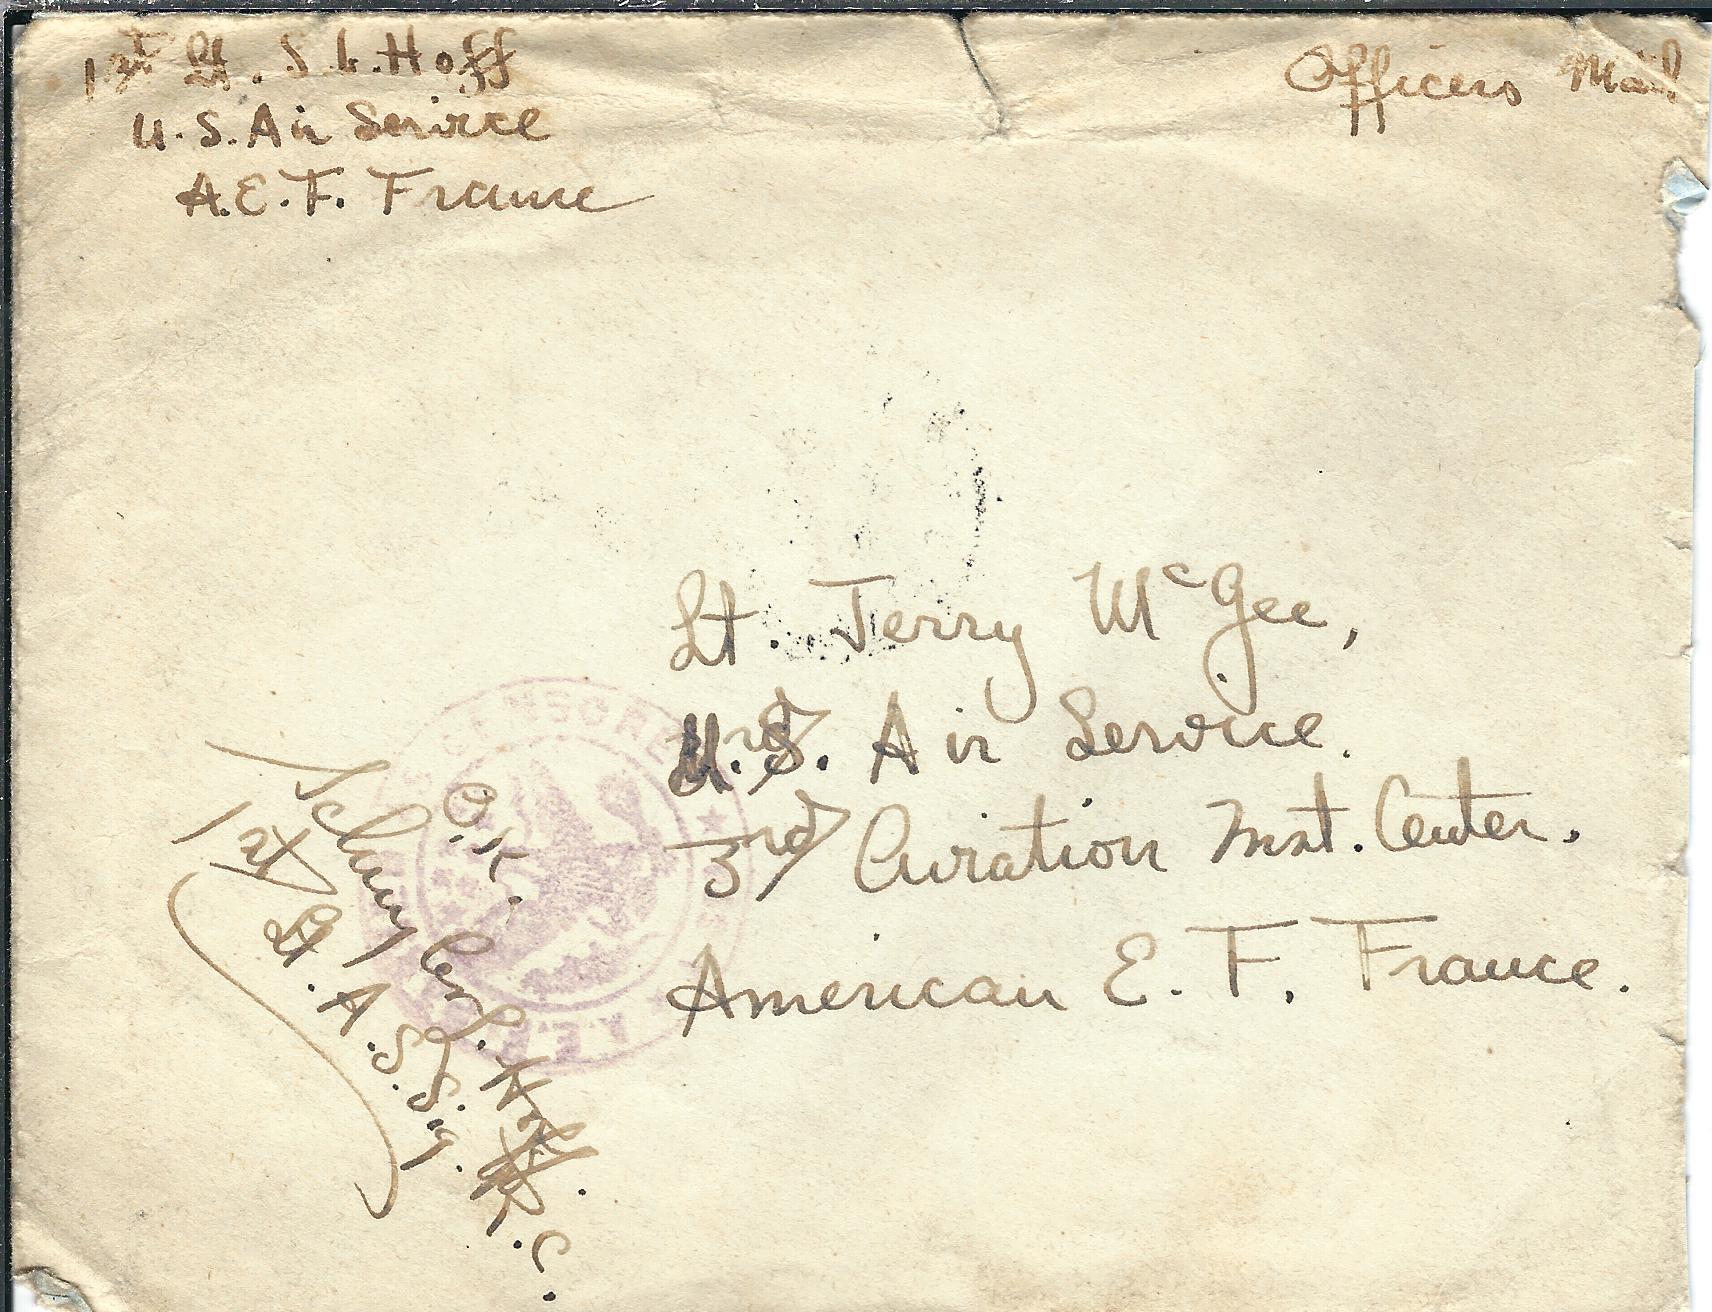 1st Lt. S. L. Hoff
U.S. Air Service
A.E.F. France
Officers Mail
Lt. Jerry McGee,
U.S. Air Service.
3rd Aviation Inst. Center.
American E. F. France.
O.K.
1st Lt. A.S. Sig. R.C.
A.E.F.